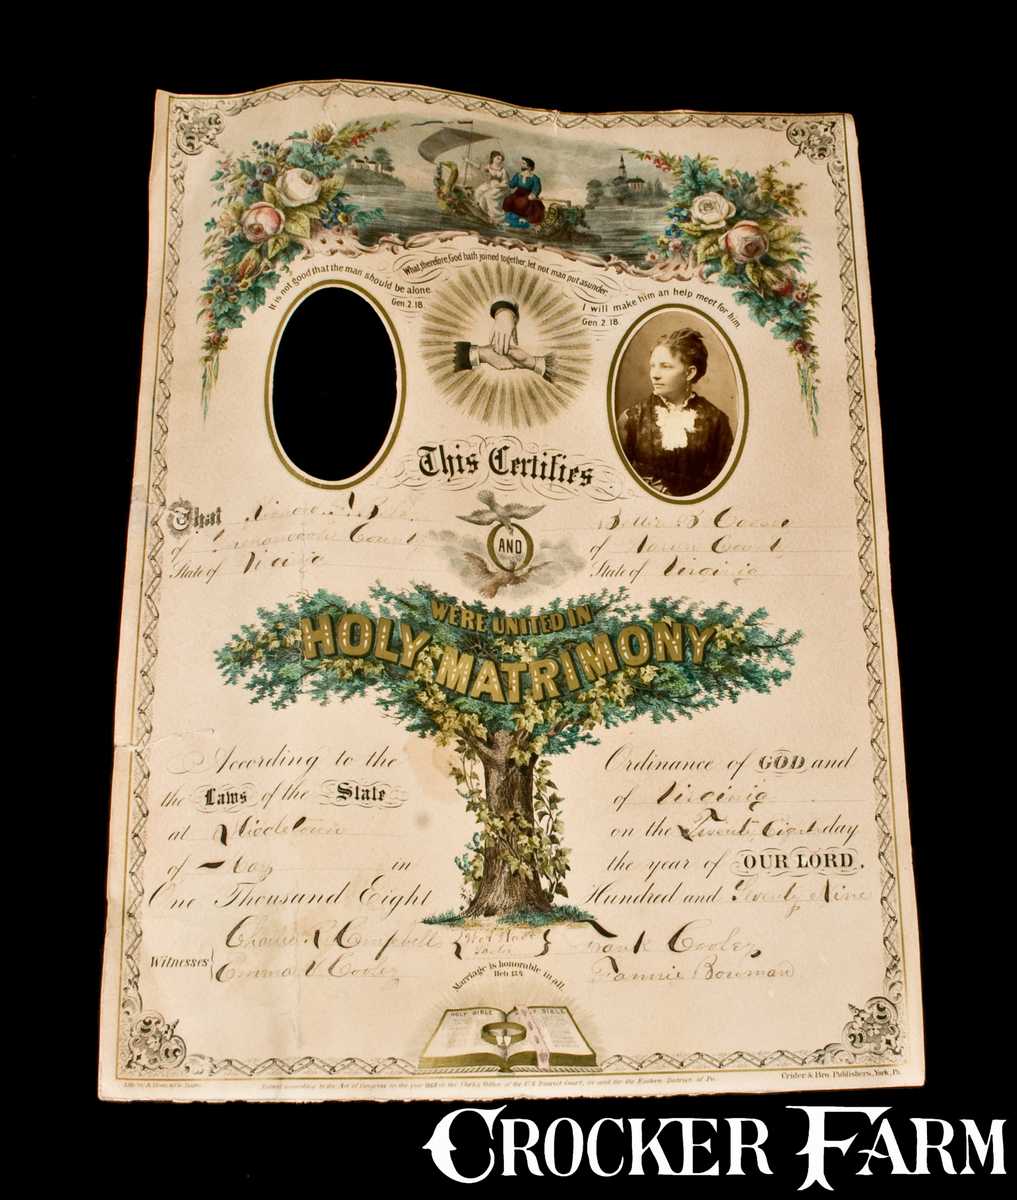 What therefore God hath joined together, let not man put asunder.
It is not good that the man should be alone.
Gen. 2. 18.
I will make him an help meet for him.
Gen. 2. 18.
This Certifies
That
AND
of County
of County
State of Virginia
State of Virginia
WERE UNITED IN
HOLY MATRIMONY
According to the Ordinance of GOD and
the Laws of the State of Virginia
at Middletown on the Twenty Eight day
of May in the year of OUR LORD.
One Thousand Eight Hundred and Seventy Nine
Charles R. Campbell Frank Cooley
Witnesses
Emma V Cooley Fannie Bowman
Marriage is honorable in all.
Heb. 13.4.
HOLY BIBLE HOLY BIBLE
Crider & Bro. Publishers, York, Pa.
Entered according to the Act of Congress in the year in the Clerk's Office of the U.S. District Court, in and for the Eastern District of Pa.
CROCKER FARM